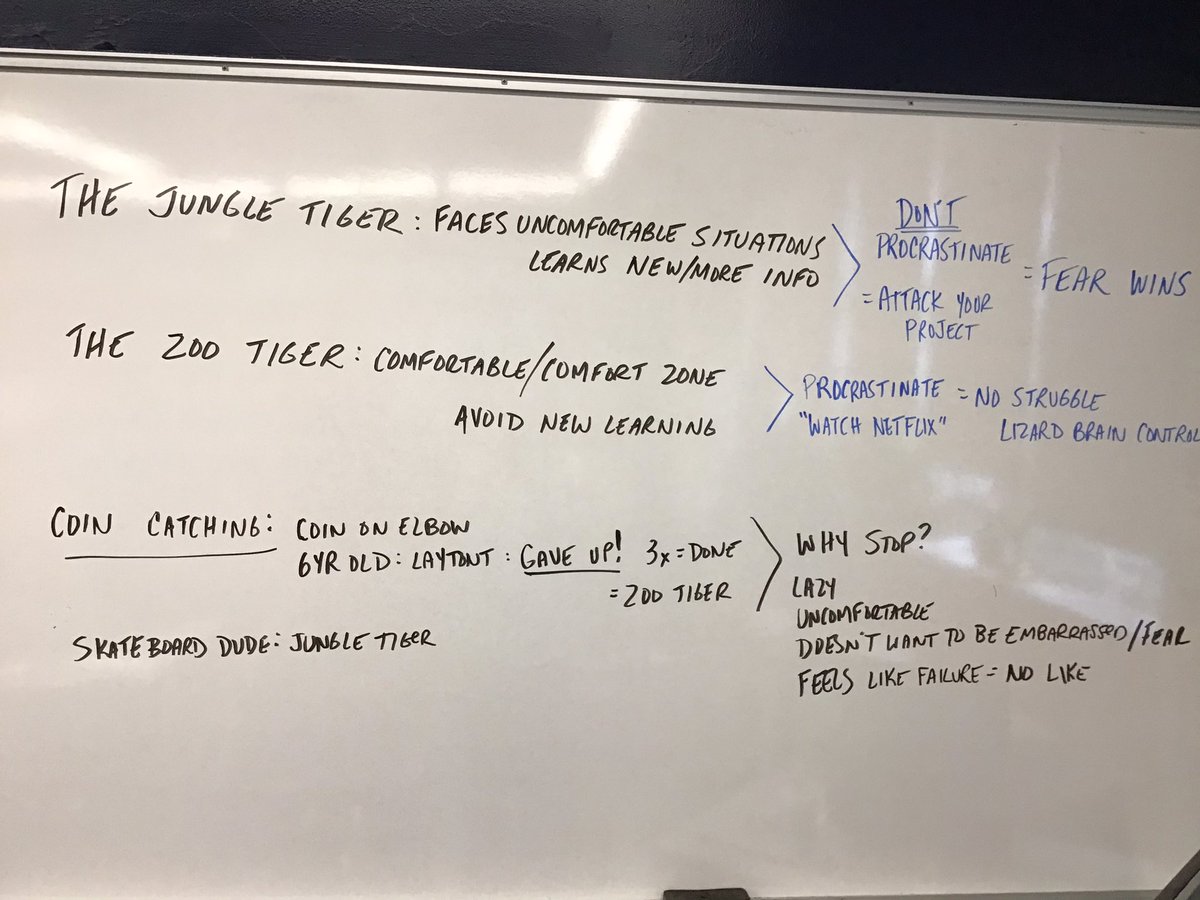 THE JUNGLE TIGER: FACES UNCOMFORTABLE SITUATIONS
LEARNS NEW/MORE INFO
DON'T
PROCRASTINATE = FEAR WINS
= ATTACK YOUR
PROJECT
THE ZOO TIGER: COMFORTABLE/COMFORT ZONE
AVOID NEW LEARNING
PROCRASTINATE = NO STRUGGLE
"WATCH NETFLIX" LIZARD BRAIN CONTROL
COIN CATCHING: COIN ON ELBOW
6YR OLD: LAYTONT: GAVE UP! 3x = DONE
= ZOO TIGER
WHY STOP?
LAZY
UNCOMFORTABLE
DOESN'T WANT TO BE EMBARRASSED/FEAR
FEELS LIKE FAILURE = NO LIKE
SKATEBOARD DUDE: JUNGLE TIGER